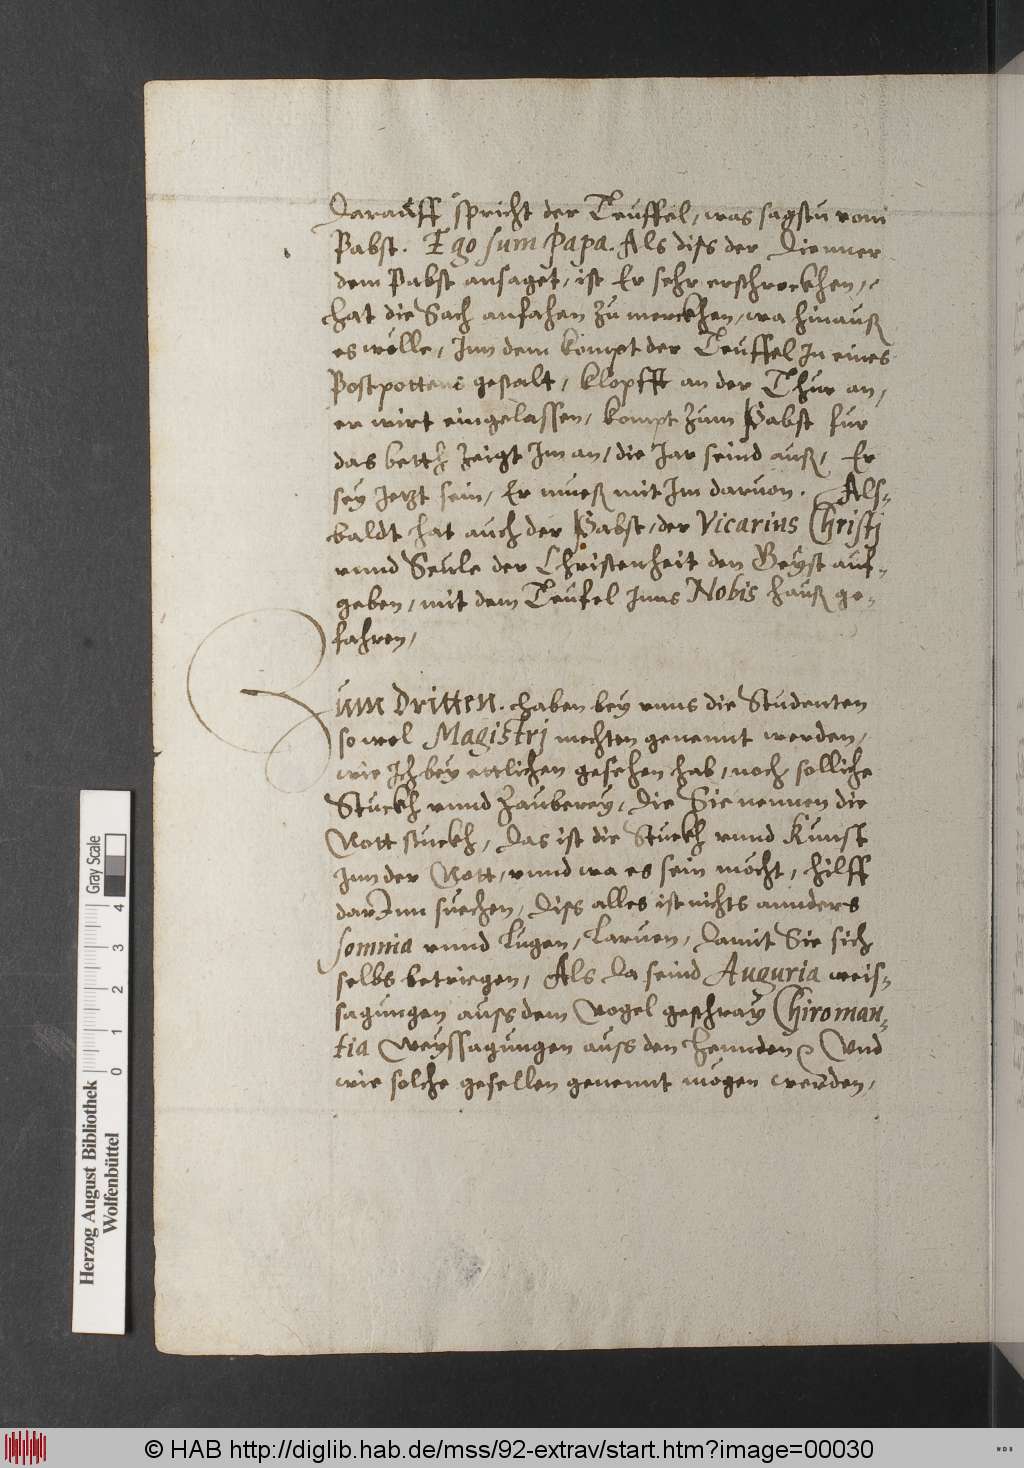 Darauff spricht der Teuffel, was sagstu vom
Pabst. Ego sum Papa. Als diss der Dienner
dem Pabst ansaget, ist Er sehr erschrockhen,
hat die Sach anfahen zu merckhen, wa hinauß
es wölle, Inn dem kompt der Teuffel In eines
Postpottens gestalt, klopfft an der Thur an,
er wirt eingelassen, kompt zum Pabst fur
das betth zeigt Im an, die Jar seind auß, Er
sey Jetzt sein, Er mueß mit Im daruon. Als-
baldt hat auch der Pabst, der Vicarius Christj
vnnd Seule der Christenheit den Geyst auf-
geben, mit dem Teufel Inns Nobis hauß ge-
fahren,
Zum Dritten. haben bey vnns die Studenten
so wol Magistrj mechten genennt werden,
wie Ich bey ettlichen gesehen hab, noch solliche
Stuckh vnnd Zauberey, die Sie nennen die
Nott stuckh, Das ist die Stuckh vnnd Kunst
Inn der Nott, vnnd wa es sein möcht, hilff
darInn suechen, Diss alles ist nichts annders
somnia vnnd Lugen, Laruen, damit Sie sich
selbs betriegen, Als da seind Auguria weis-
sagungen auss dem Vogel geschray Chiroman-
tia Weyssagungen auss den Hennden Vnd
wie solche gesellen genennt mögen werden,
Herzog August Bibliothek
Wolfenbüttel
Gray Scale
0 1 2 3 4
© HAB http://diglib.hab.de/mss/92-extrav/start.htm?image=00030